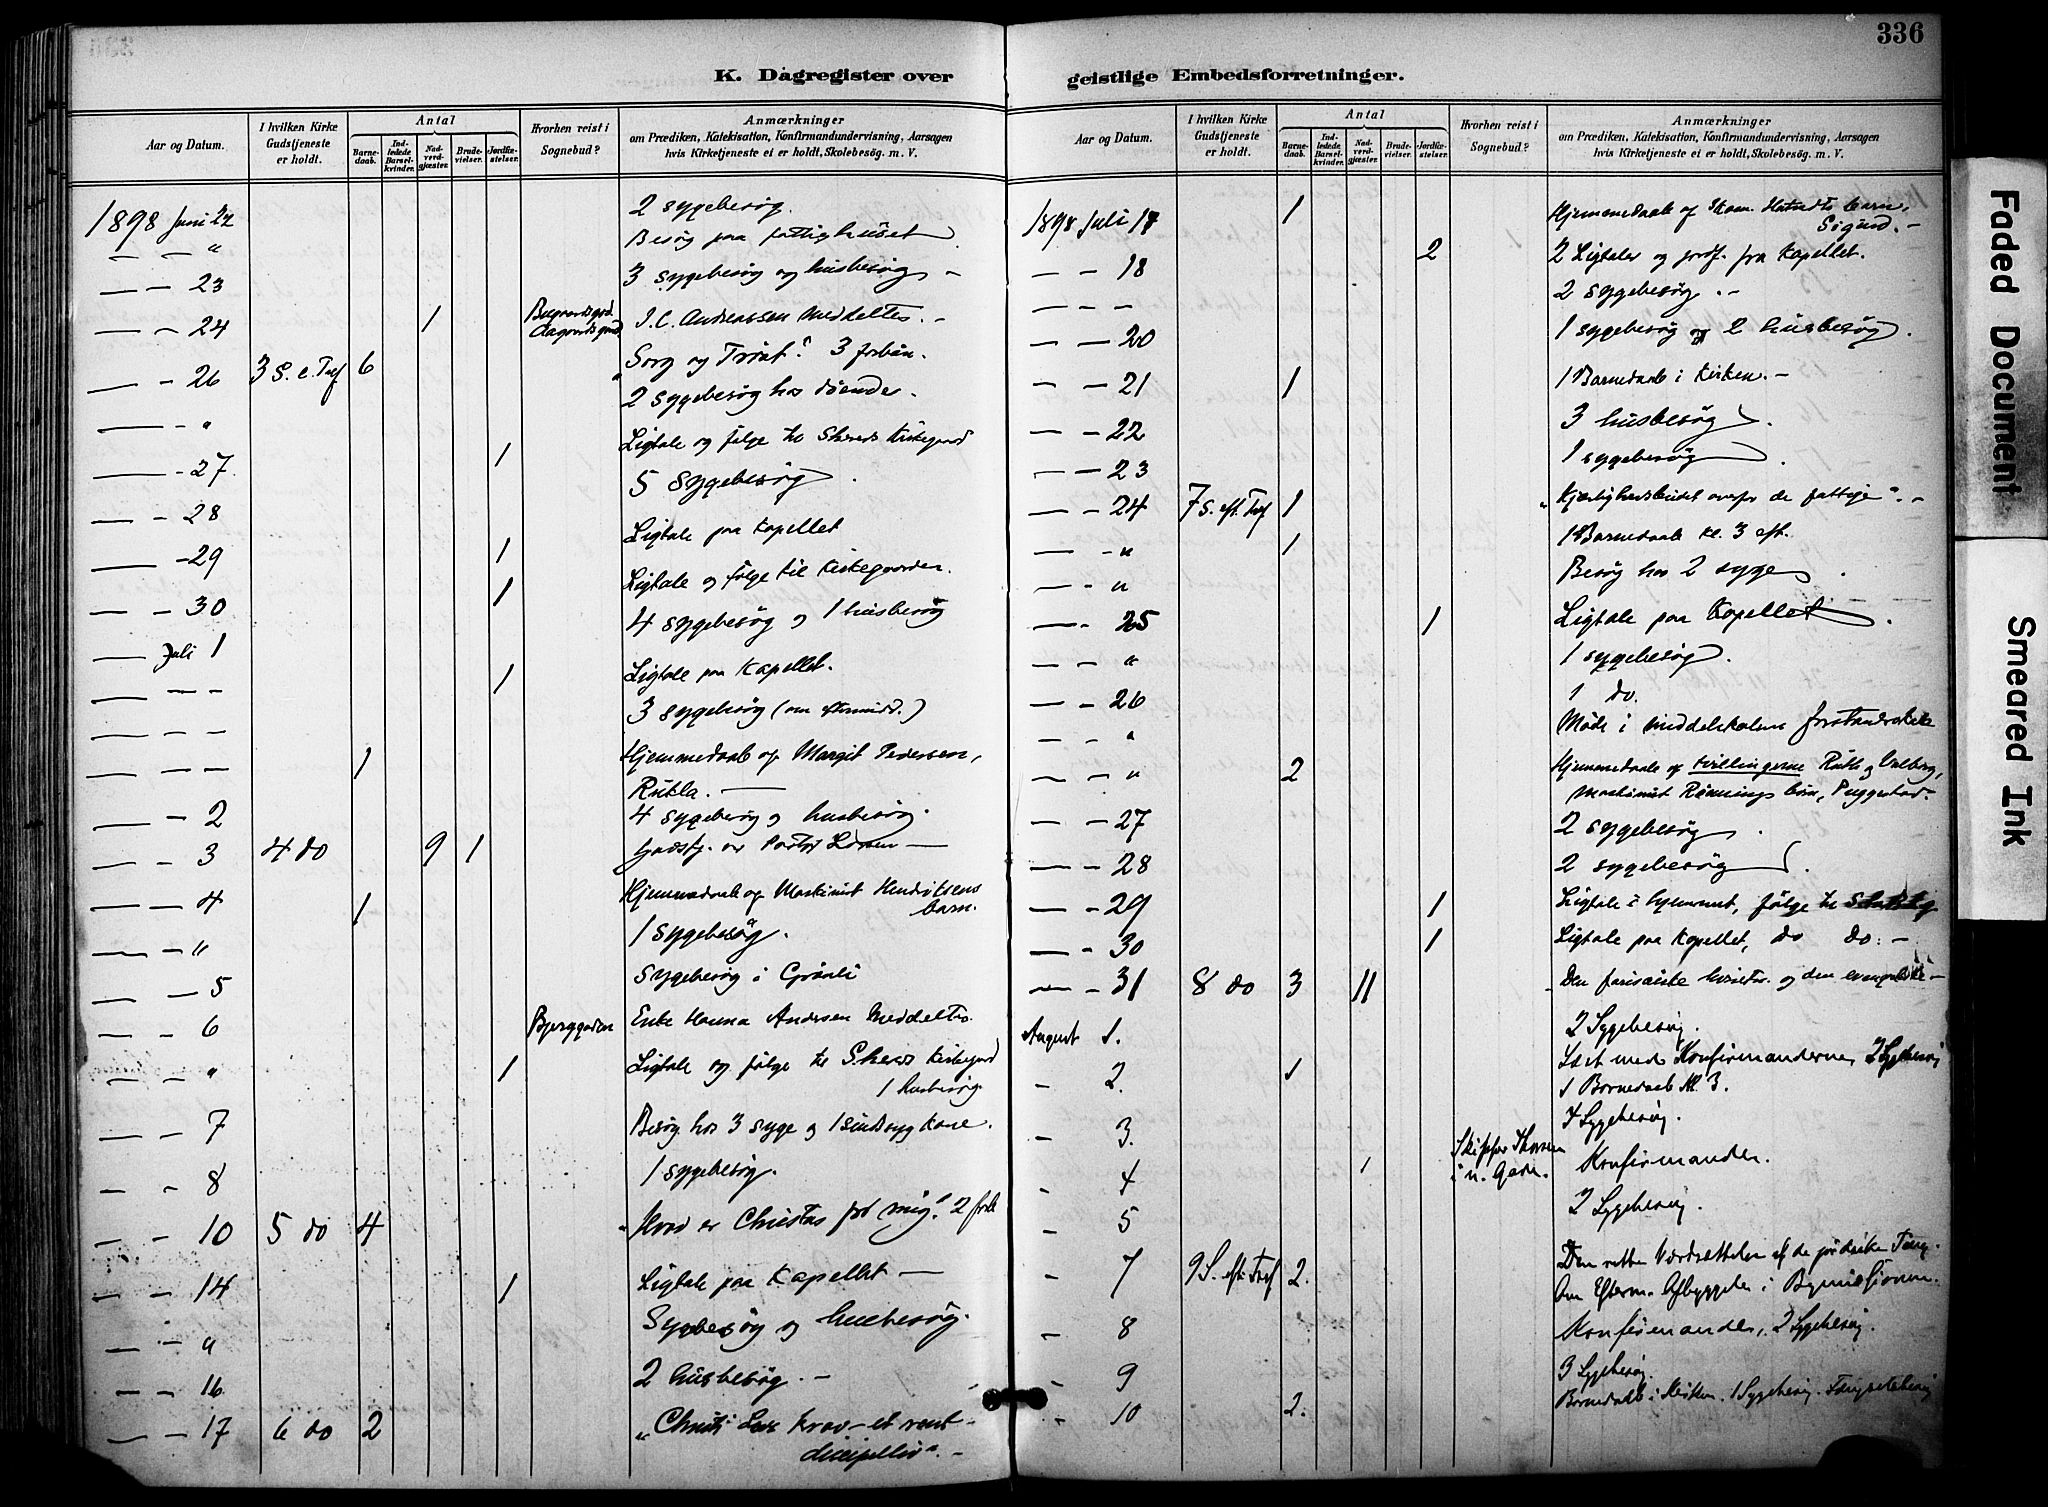 336
K. Dagregister over geistlige Embedsforretninger.
Aar og Datum.
I hvilken Kirke Gudstjeneste er holdt.
Antal
Barnedaab.
Indledede Barselkvinder.
Nadverdgjæster.
Brudevielser.
Jordfæstelser.
Hvorhen reist i Sognebud?
Anmærkninger
om Prædiken, Katekisation, Konfirmandundervisning, Aarsagen
hvis Kirketjeneste ei er holdt, Skolebesög. m. V.
1898 Juni 22 2 sygebesøg.
— — " Besøg paa fattighuset
— — 23 3 sygebesøg og husbesøg —
— — 24 1 J. C. Andreassen meddeltes. —
— — 26 3 S. e. Tref 6 "Sorg og Trøst" 3 forbøn.
— — " 2 sygebesøg hos døende.
— — 27 1 Ligtale og følge til Skeres Kirkegaard
— — 28 5 sygebesøg.
— 29 1 Ligtale paa Kapellet
— — 30 1 Ligtale og følge til Kirkegaarden.
— Juli 1 4 sygebesøg og 1 husbesøg
— — — 1 Ligtale paa Kapellet.
— — — 3 sygebesøg (om eftermidd.)
— — — 1 Hjemmedaab af Margit Pedersen,
— — 2 4 sygebesøg og husbesøg.
— — 3 4 do 9 1
— — 4 1 Hjemmedaab af Maskinist Hendriksens barn.
— — " 1 sygebesøg.
— — 5 Sygebesøg i Grønli
— — 6 Bjerggaden Enke Hanna Andersen meddeltes.
— — " 1 Ligtale og følge til Skeres Kirkegaard
1 husbesøg
— — 7 Besøg hos 3 syge og 1 sindssyg Kone.
— — 8 1 sygebesøg.
— — 10 5 do 4 "Hvad er Christus for mig" 2 forb
— — 14 1 Ligtale paa Kapellet —
— — " Sygebesøg og husbesøg.
— — 16 2 husbesøg. —
— — 17 6 do 2 "Christi Krav — et sandt
discipelliv". —
K. Dagregister over geistlige Embedsforretninger.
Aar og Datum.
I hvilken Kirke Gudstjeneste er holdt.
Antal
Barnedaab.
Indledede Barselkvinder.
Nadverdgjæster.
Brudevielser.
Jordfæstelser.
Hvorhen reist i Sognebud?
Anmærkninger
om Prædiken, Katekisation, Konfirmandundervisning, Aarsagen
hvis Kirketjeneste ei er holdt, Skolebesög. m. V.
1898 Juli 17 1 Hjemmedaab af barn, Sigurd. —
— — 18 2 2 Ligtaler og jordf. fra Kapellet.
— — — 2 sygebesøg. —
— — 20 1 sygebesøg og 2 husbesøg.
— — 21 1 1 Barnedaab i Kirken. —
— — 22 3 husbesøg.
— — 23 1 sygebesøg.
— — 24 7 S. eft. Tref 1 "Kjærlighedsbudet overfor de fattige". —
— — " 1 1 Barnedaab kl. 3 eft.
— — " Besøg hos 2 syge.
— — 25 1 Ligtale paa Kapellet.
— — " 1 sygebesøg.
— — 26 1 do.
— — " Møde i middelskolens forstanderskab
— — " 2 Hjemmedaab af tvillingerne Ruth og Valborg,
Maskinist Rønnings børn,
— — 27 2 sygebesøg.
— — 28 2 sygebesøg.
— — 29 1 Ligtale i hjemmet, følge til
— — 30 1 Ligtale paa Kapellet, do do. —
— — 31 8 do 3 11
August 1. 2 Sygebesøg.
Læst med Konfirmanderne, 2 Sygebesøg
- 2. 1 1 Barnedaab Kl. 3.
- 3. 4 Sygebesøg.
- 4 1 Konfirmander.
- 5 2 Sygebesøg.
- 7 9 S. eft. Tref 2. Den rette Værdsættelse af de jordiske Ting.
Om Efterm. i Bymissionen.
- 8 Konfirmander, 2 Sygebesøg.
- 9 3 Sygebesøg.
- 10 2. Barnedaab i Kirken. 1 Sygebesøg. Fængselsbesøg
Faded Document
Smeared Ink